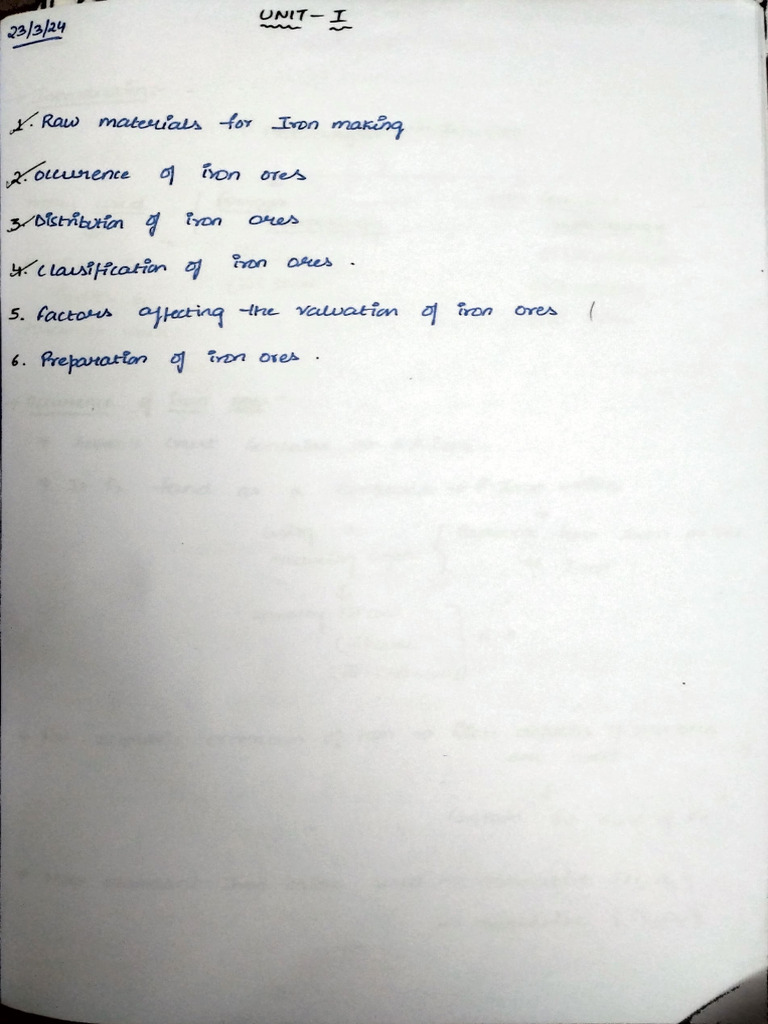 23/3/24
UNIT - I
1. Raw materials for Iron making
2. Occurence of iron ores
3. Distribution of iron ores
4. Classification of iron ores .
5. Factors affecting the valuation of iron ores (
6. Preparation of iron ores .